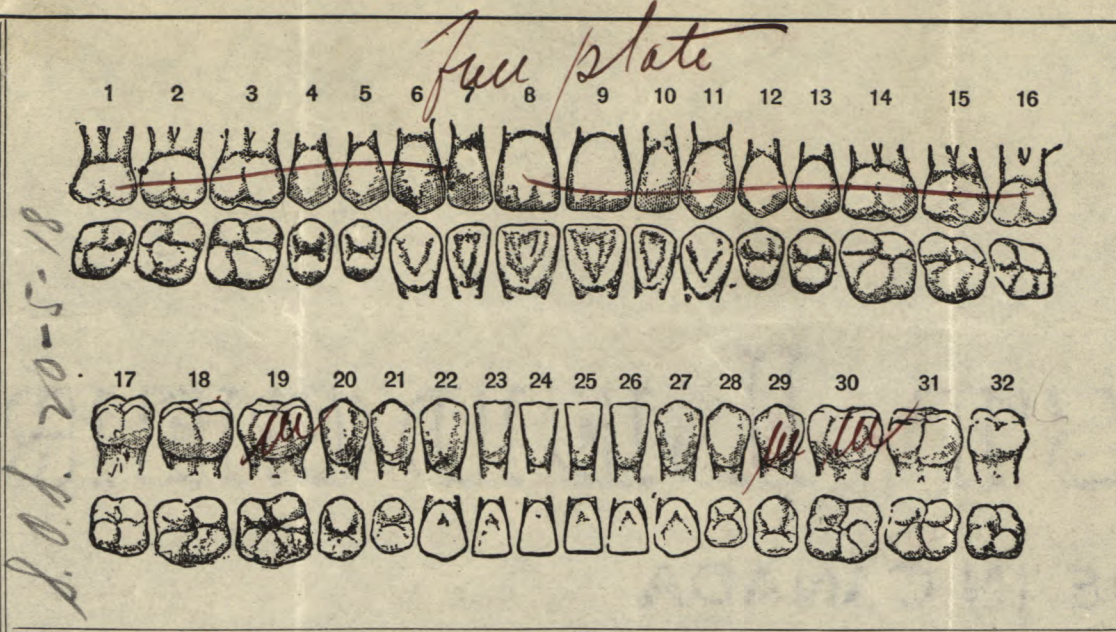 Full plate
1 2 3 4 5 6 7 8 9 10 11 12 13 14 15 16
17 18 19 20 21 22 23 24 25 26 27 28 29 30 31 32
S.O.S. 20-5-18